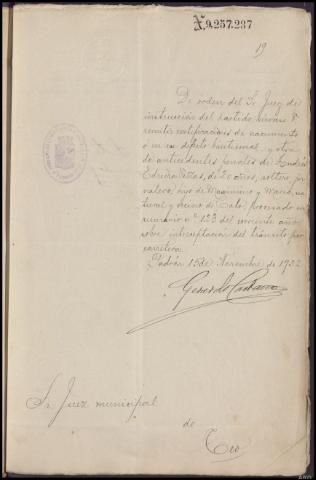 X.9.257.237
19
De orden del Sr Juez de
instrucción del partido sírvase V.
remitir certificaciones de nacimiento
ó en su defecto bautismal, y otra
de antecedentes penales de Andrés
de 20 años, soltero, jor-
nalero, hijo de Maximino y María, na-
tural y vecino de Calo, procesado en
sumario nº 123 del corriente año,
sobre interceptación del tránsito por
carretera.
Padrón 15 de Noviembre de 1922
Gerardo
Sr Juez municipal
de
Teo